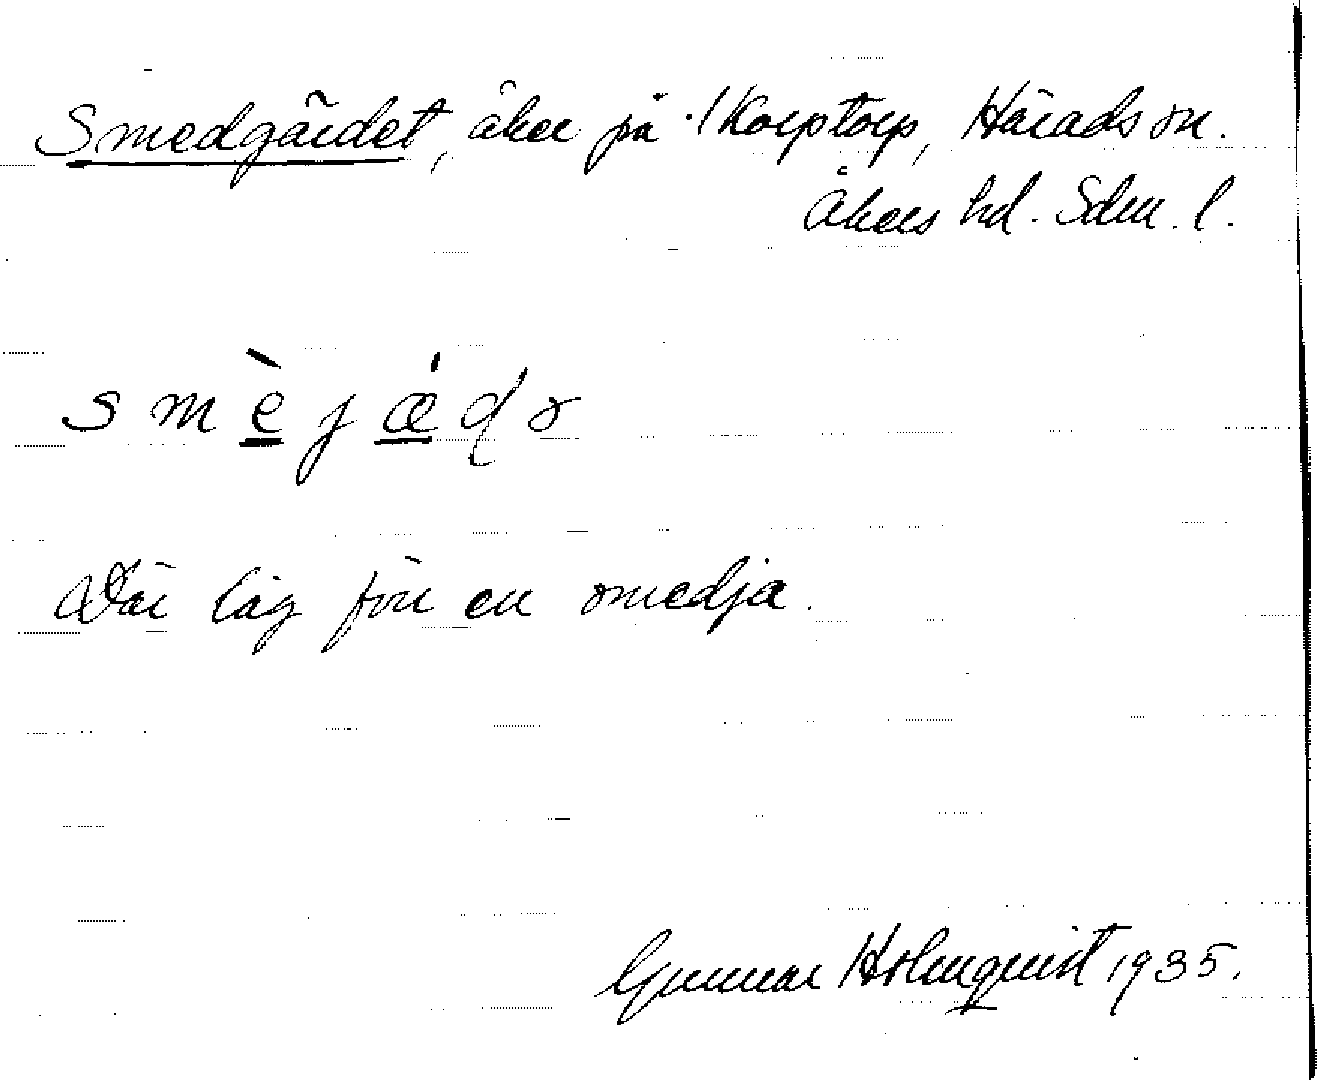 Smedgärdet, åker på ·/ Korptorp, Härads sn.
Åkers hd. Sdm. l.
s m è j ǽ d o
Där låg förr en smedja.
Gunnar Holmquist 1935.